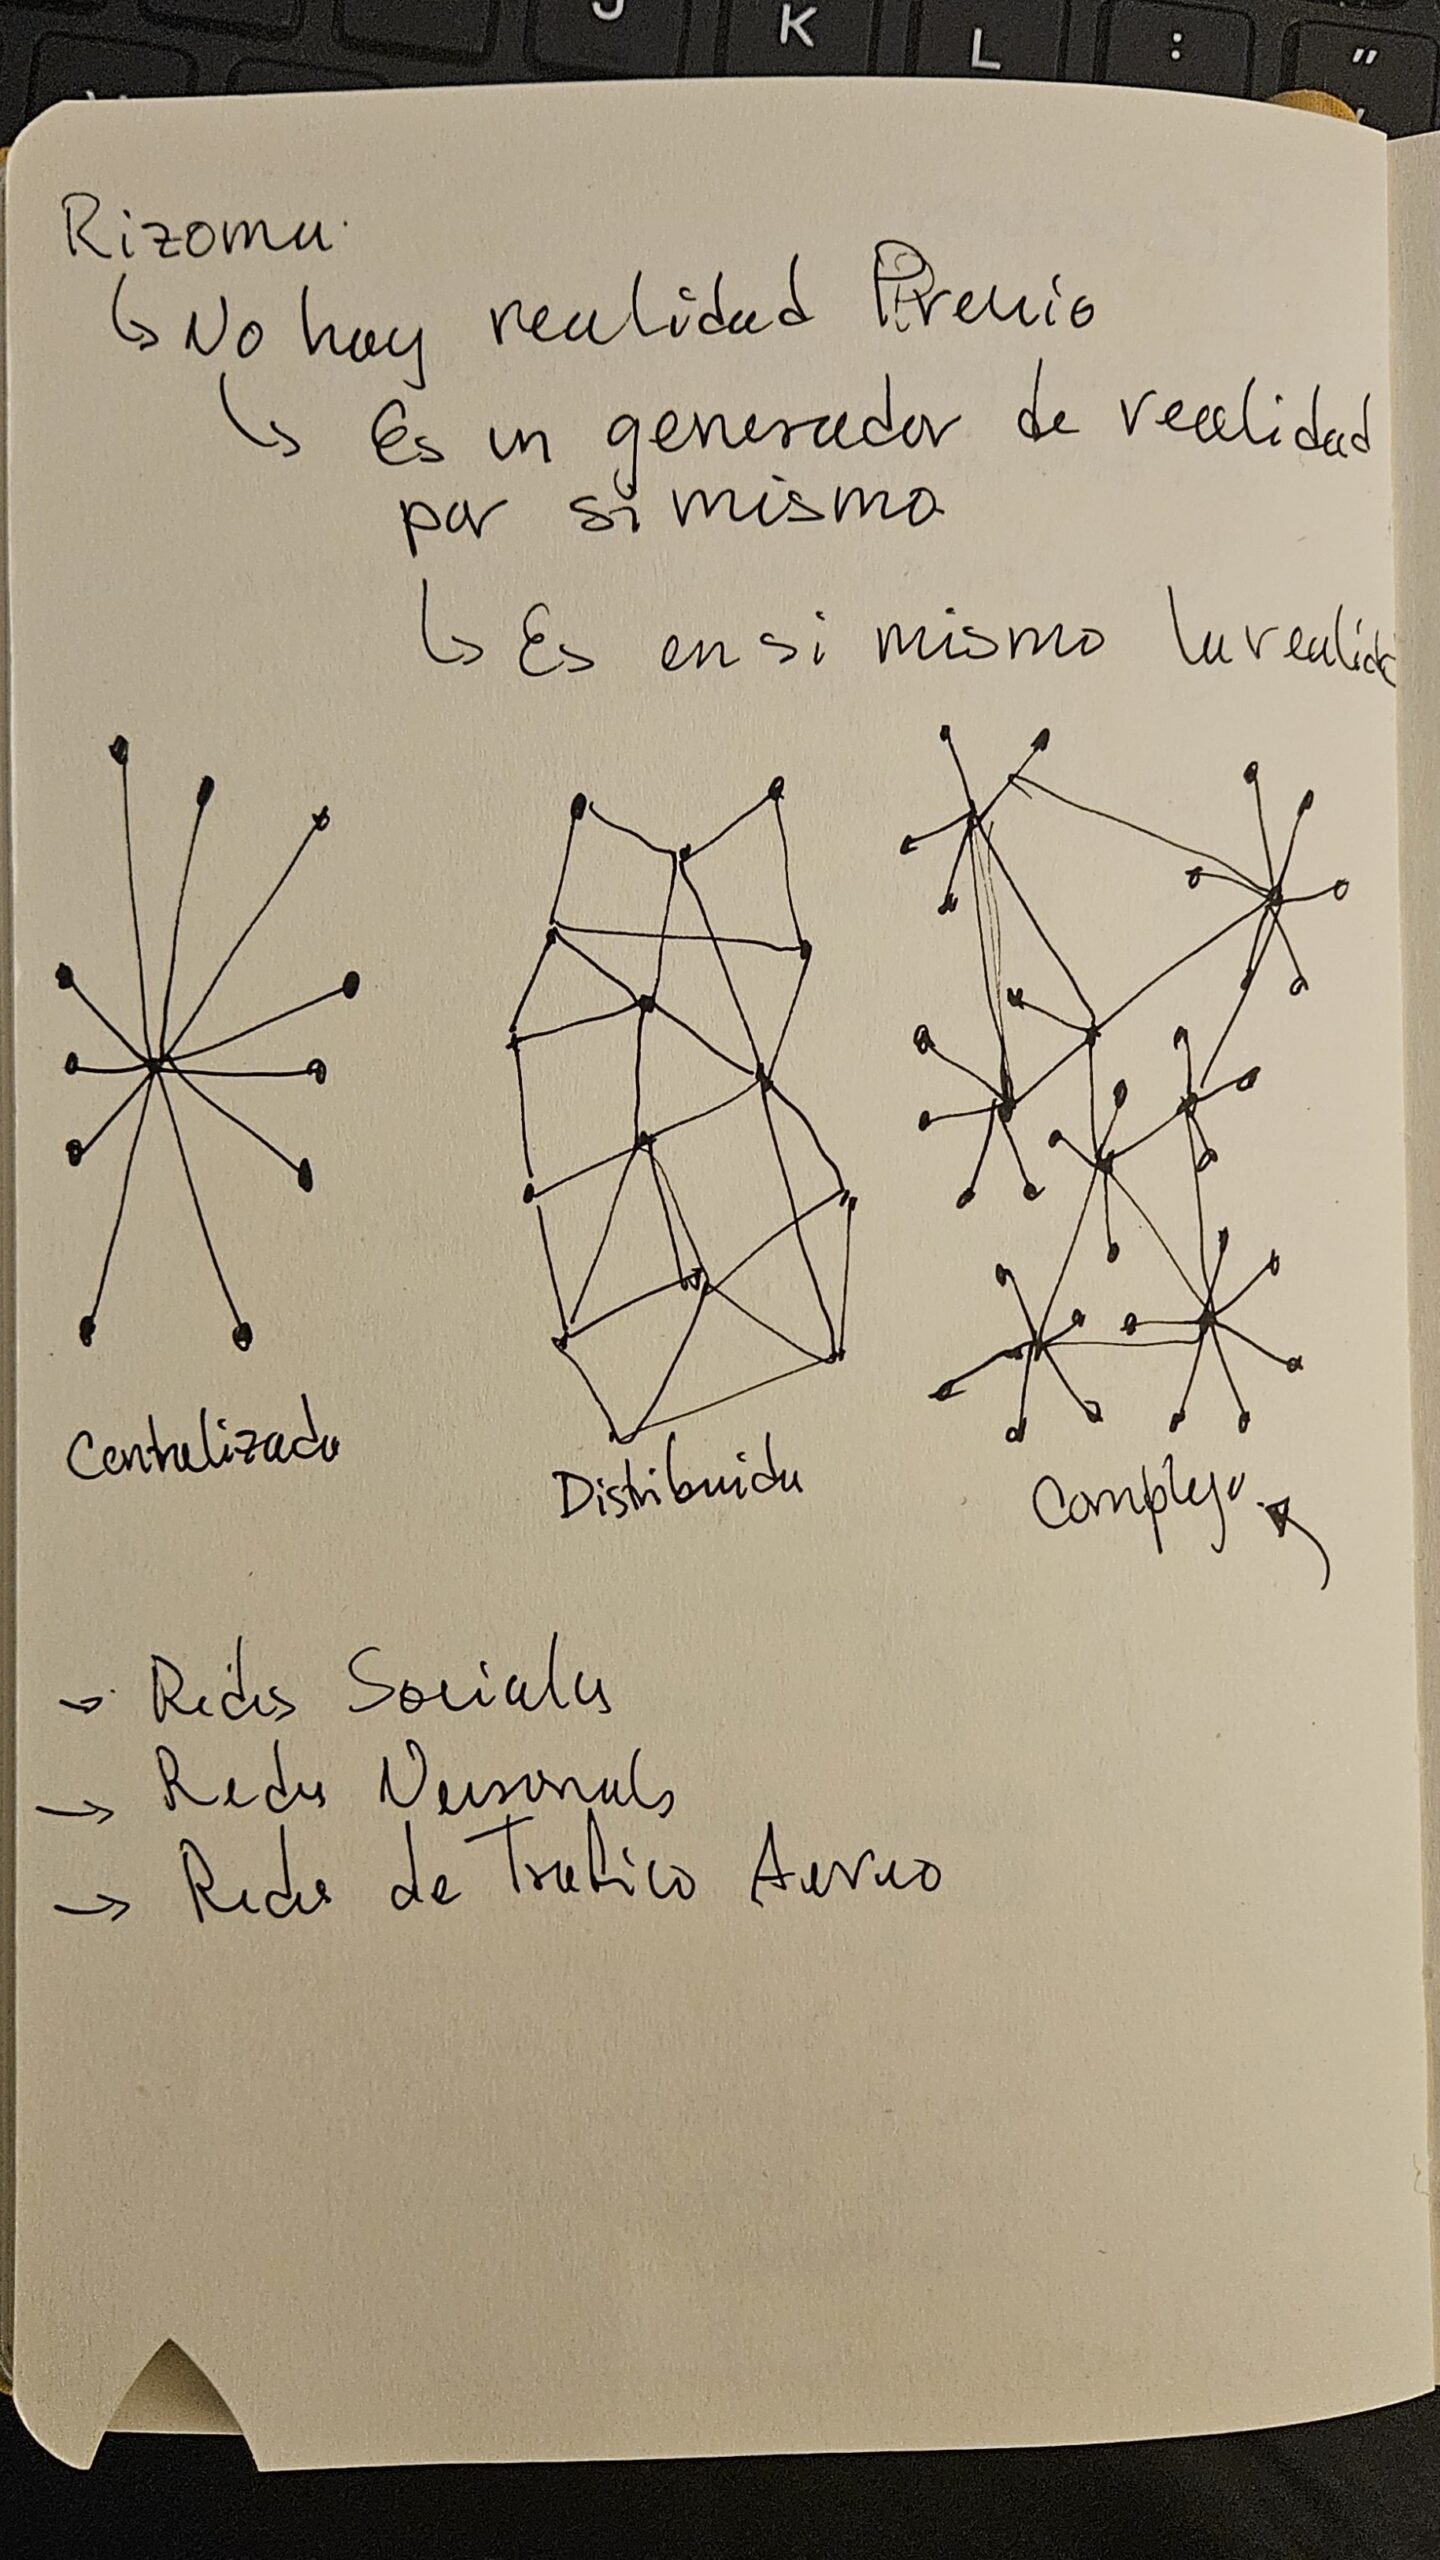 J K L : "
Rizoma
↳ No hay realidad Previa
↳ Es un generador de realidad
por si mismo
↳ Es en si mismo la realid
Centralizado
Distribuida
Compleja
→ Redes Sociales
→ Redes Neuronals
→ Redes de Trafico Aereo